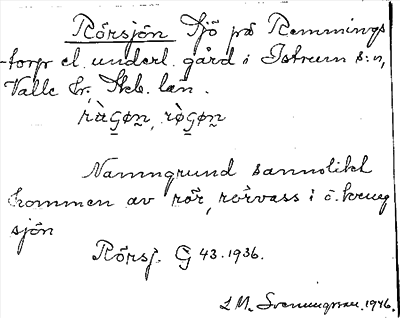 Rörsjön Sjö på Remmings
-torp el. underl. gård i Istrum s:n,
Valle hr, Skb. län.
Namngrund sannolikt
kommen av rör, rörvass i o. kring
sjön
Rörsj. G 43. 1936.
L M. Svenungsson. 1946.